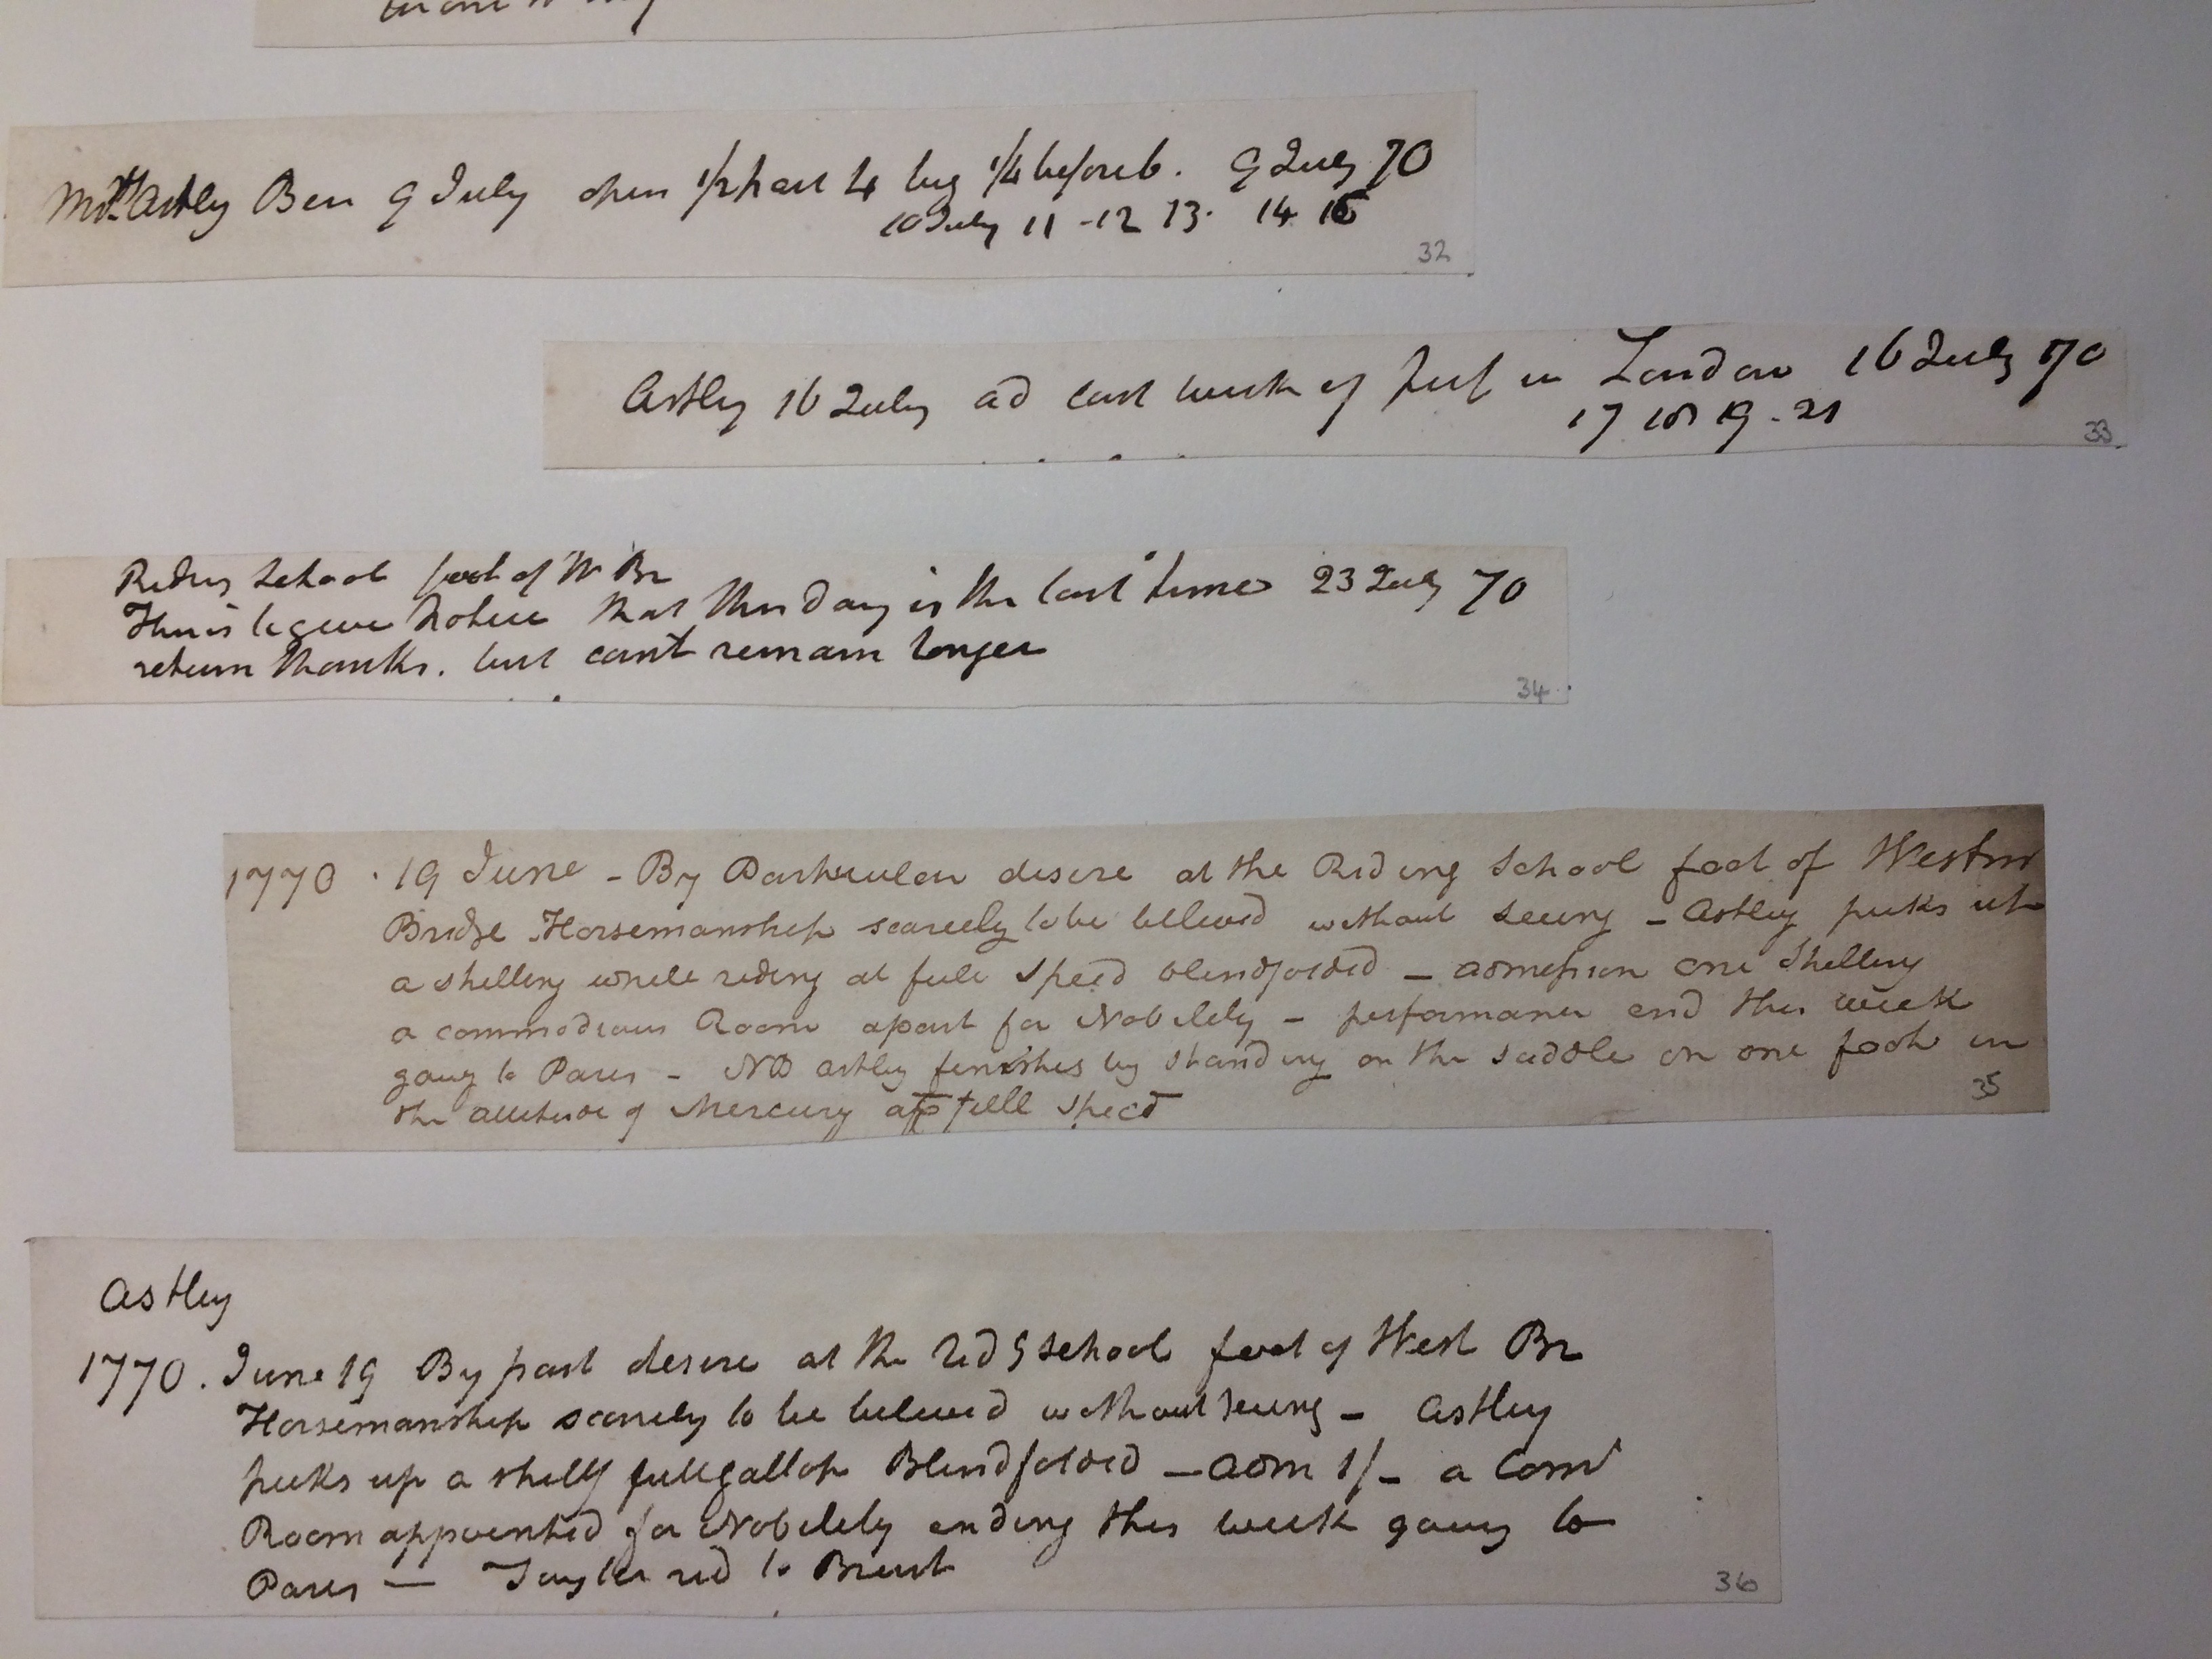 Mrs Astley Ben 9 July open 1/2 past 4 beg 1/4 before 6. 9 July 70
10 July 11 - 12 13. 14 16
32
Astley 16 July ad last week of perf in London 16 July 70
17 18 19 - 21
33
Riding School foot of W Br
This is to give Notice that this day is the last time 23 July 70
return thanks. but can't remain longer
34
1770 . 19 June - By Particular desire at the Riding School foot of Westmr
Bridge Horsemanship scarcely to be believed without seeing - Astley picks up
a shilling while riding at full speed blindfolded - admission one Shilling
a commodious Room apart for Nobility - performance end this week
going to Paris - NB Astley finishes by standing on the saddle on one foot in
the attitude of Mercury at full speed
35
Astley
1770. June 19 By part desire at the Rid g School foot of West Br
Horsemanship scarcely to be believed without seeing - Astley
picks up a shillg full gallop Blindfolded - adm 1/- a Com
Room appointed for Nobility ending this week going to
Paris — Taylor rid to Brent
36